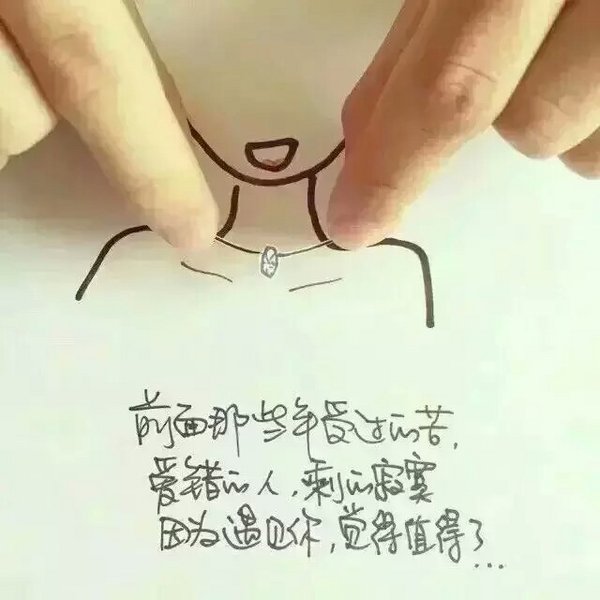 前面那些年受过的苦,
爱错的人,剩的寂寞
因为遇见你,觉得值得了...